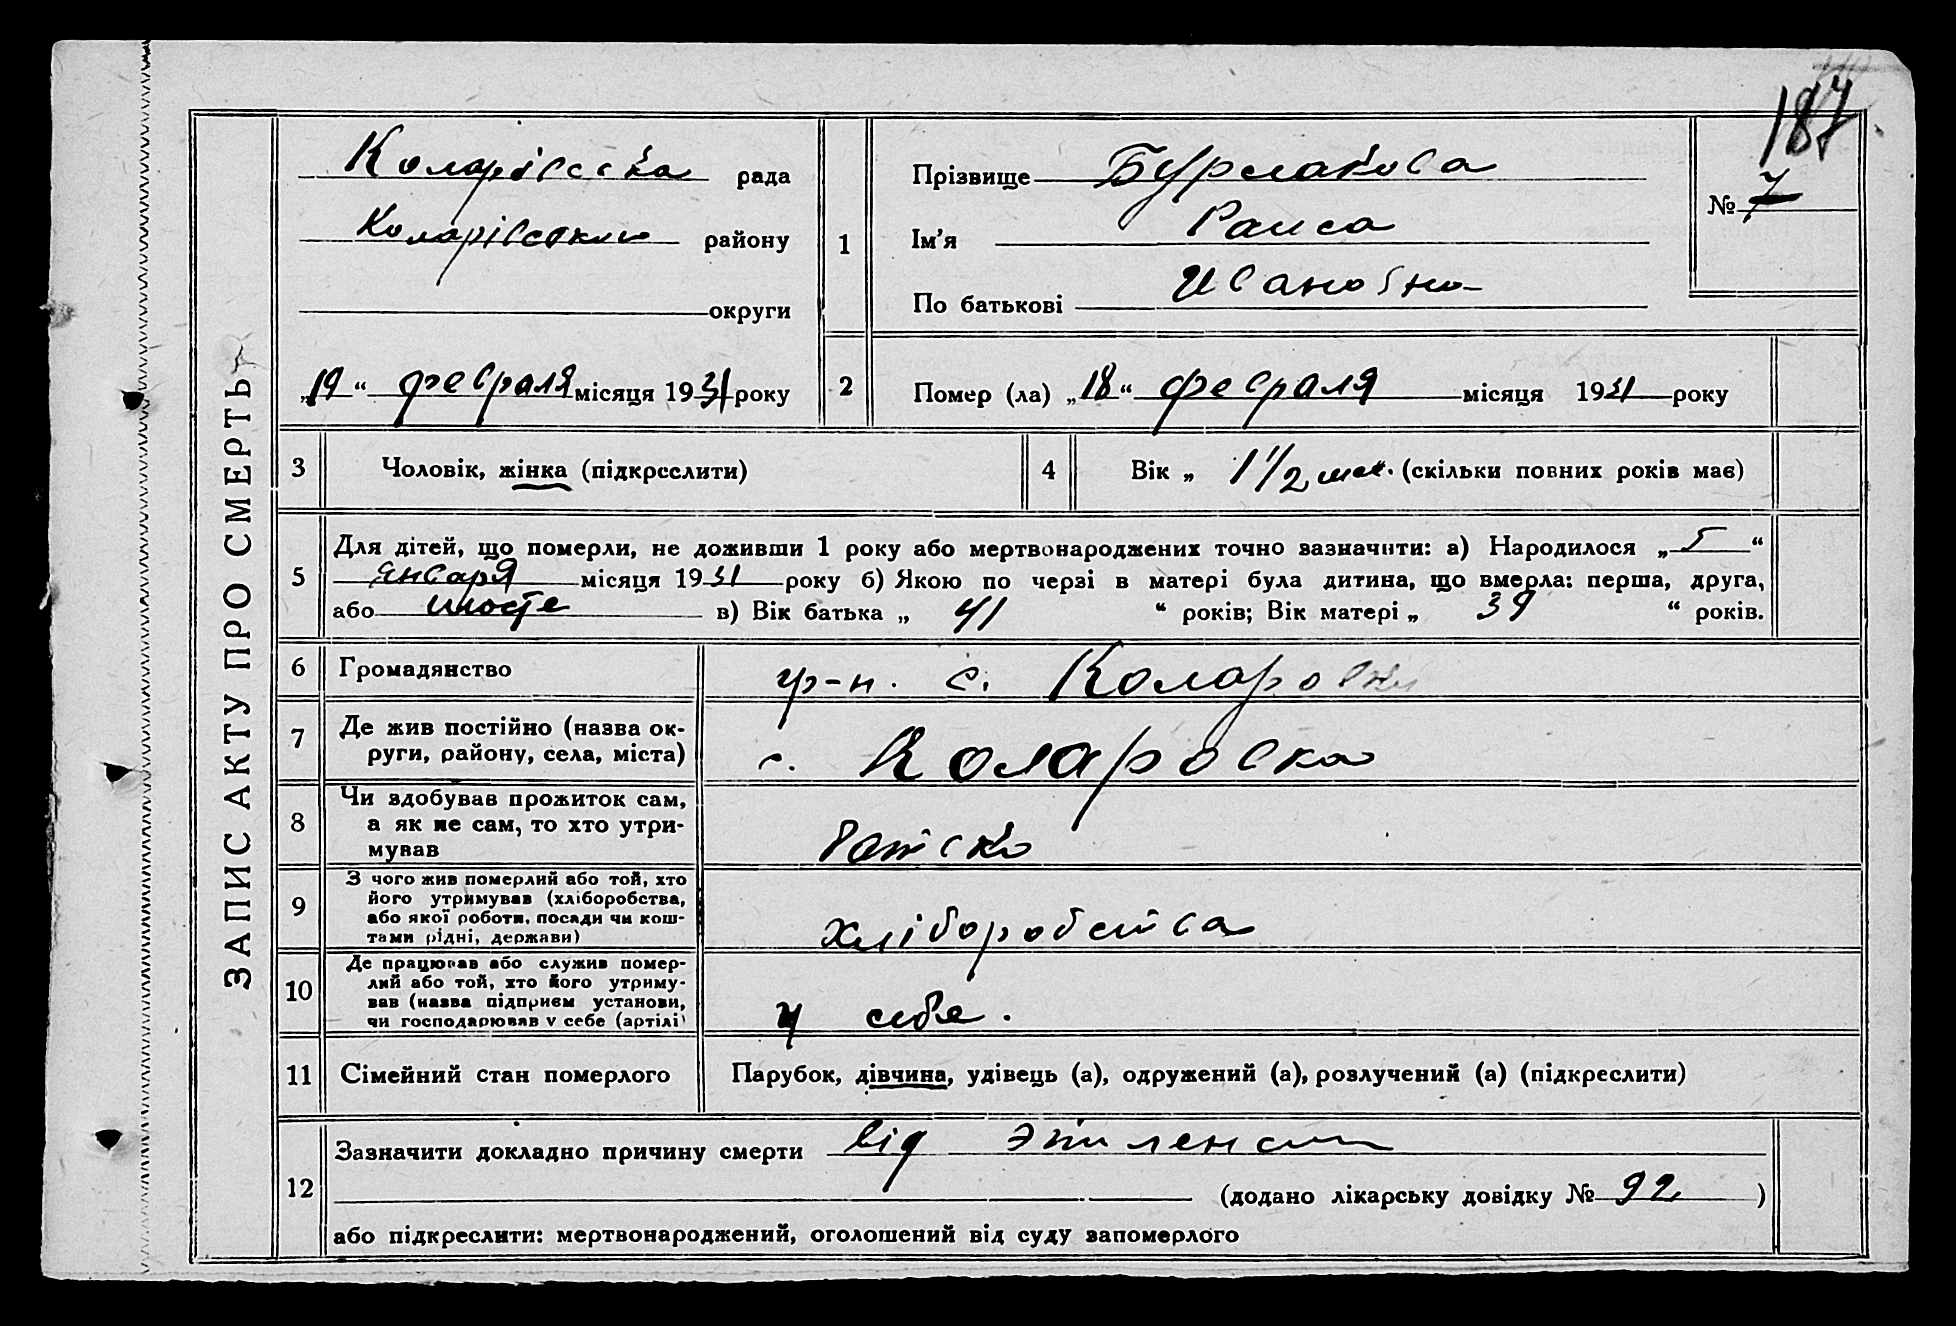 187
ЗАПИС АКТУ ПРО СМЕРТЬ
Коларівська рада
Коларівського району
округи
„19“ февраля місяця 1931 року
1
Прізвище Бурлакова
Ім'я Раиса
По батькові Ивановна
№ 7
2 Помер (ла) „18“ февраля місяця 1931 року
3 Чоловік, жінка (підкреслити)
4 Вік „ 1 1/2 мес. (скільки повних років має)
5 Для дітей, що померли, не доживши 1 року або мертвонароджених точно зазначити: а) Народилося „5“
января місяця 1931 року б) Якою по черзі в матері була дитина, що вмерла: перша, друга,
або шосте в) Вік батька „ 41 “ років; Вік матері „ 39 “ років.
6 Громадянство гр-н. с. Коларовки
7 Де жив постійно (назва ок-
руги, району, села, міста) с. Коларовка
8 Чи здобував прожиток сам,
а як не сам, то хто утри-
мував батько
9 З чого жив померлий або той, хто
його утримував (хліборобства,
або якої роботи, посади чи кош-
тами рідні, держави) хліборобства
10 Де працював або служив помер-
лий або той, хто його утриму-
вав (назва підприєм установи,
чи господарював у себе (артілі) у себе.
11 Сімейний стан померлого Парубок, дівчина, удівець (а), одружений (а), розлучений (а) (підкреслити)
12 Зазначити докладно причину смерти від
(додано лікарську довідку № 92)
або підкреслити: мертвонароджений, оголошений від суду запомерлого